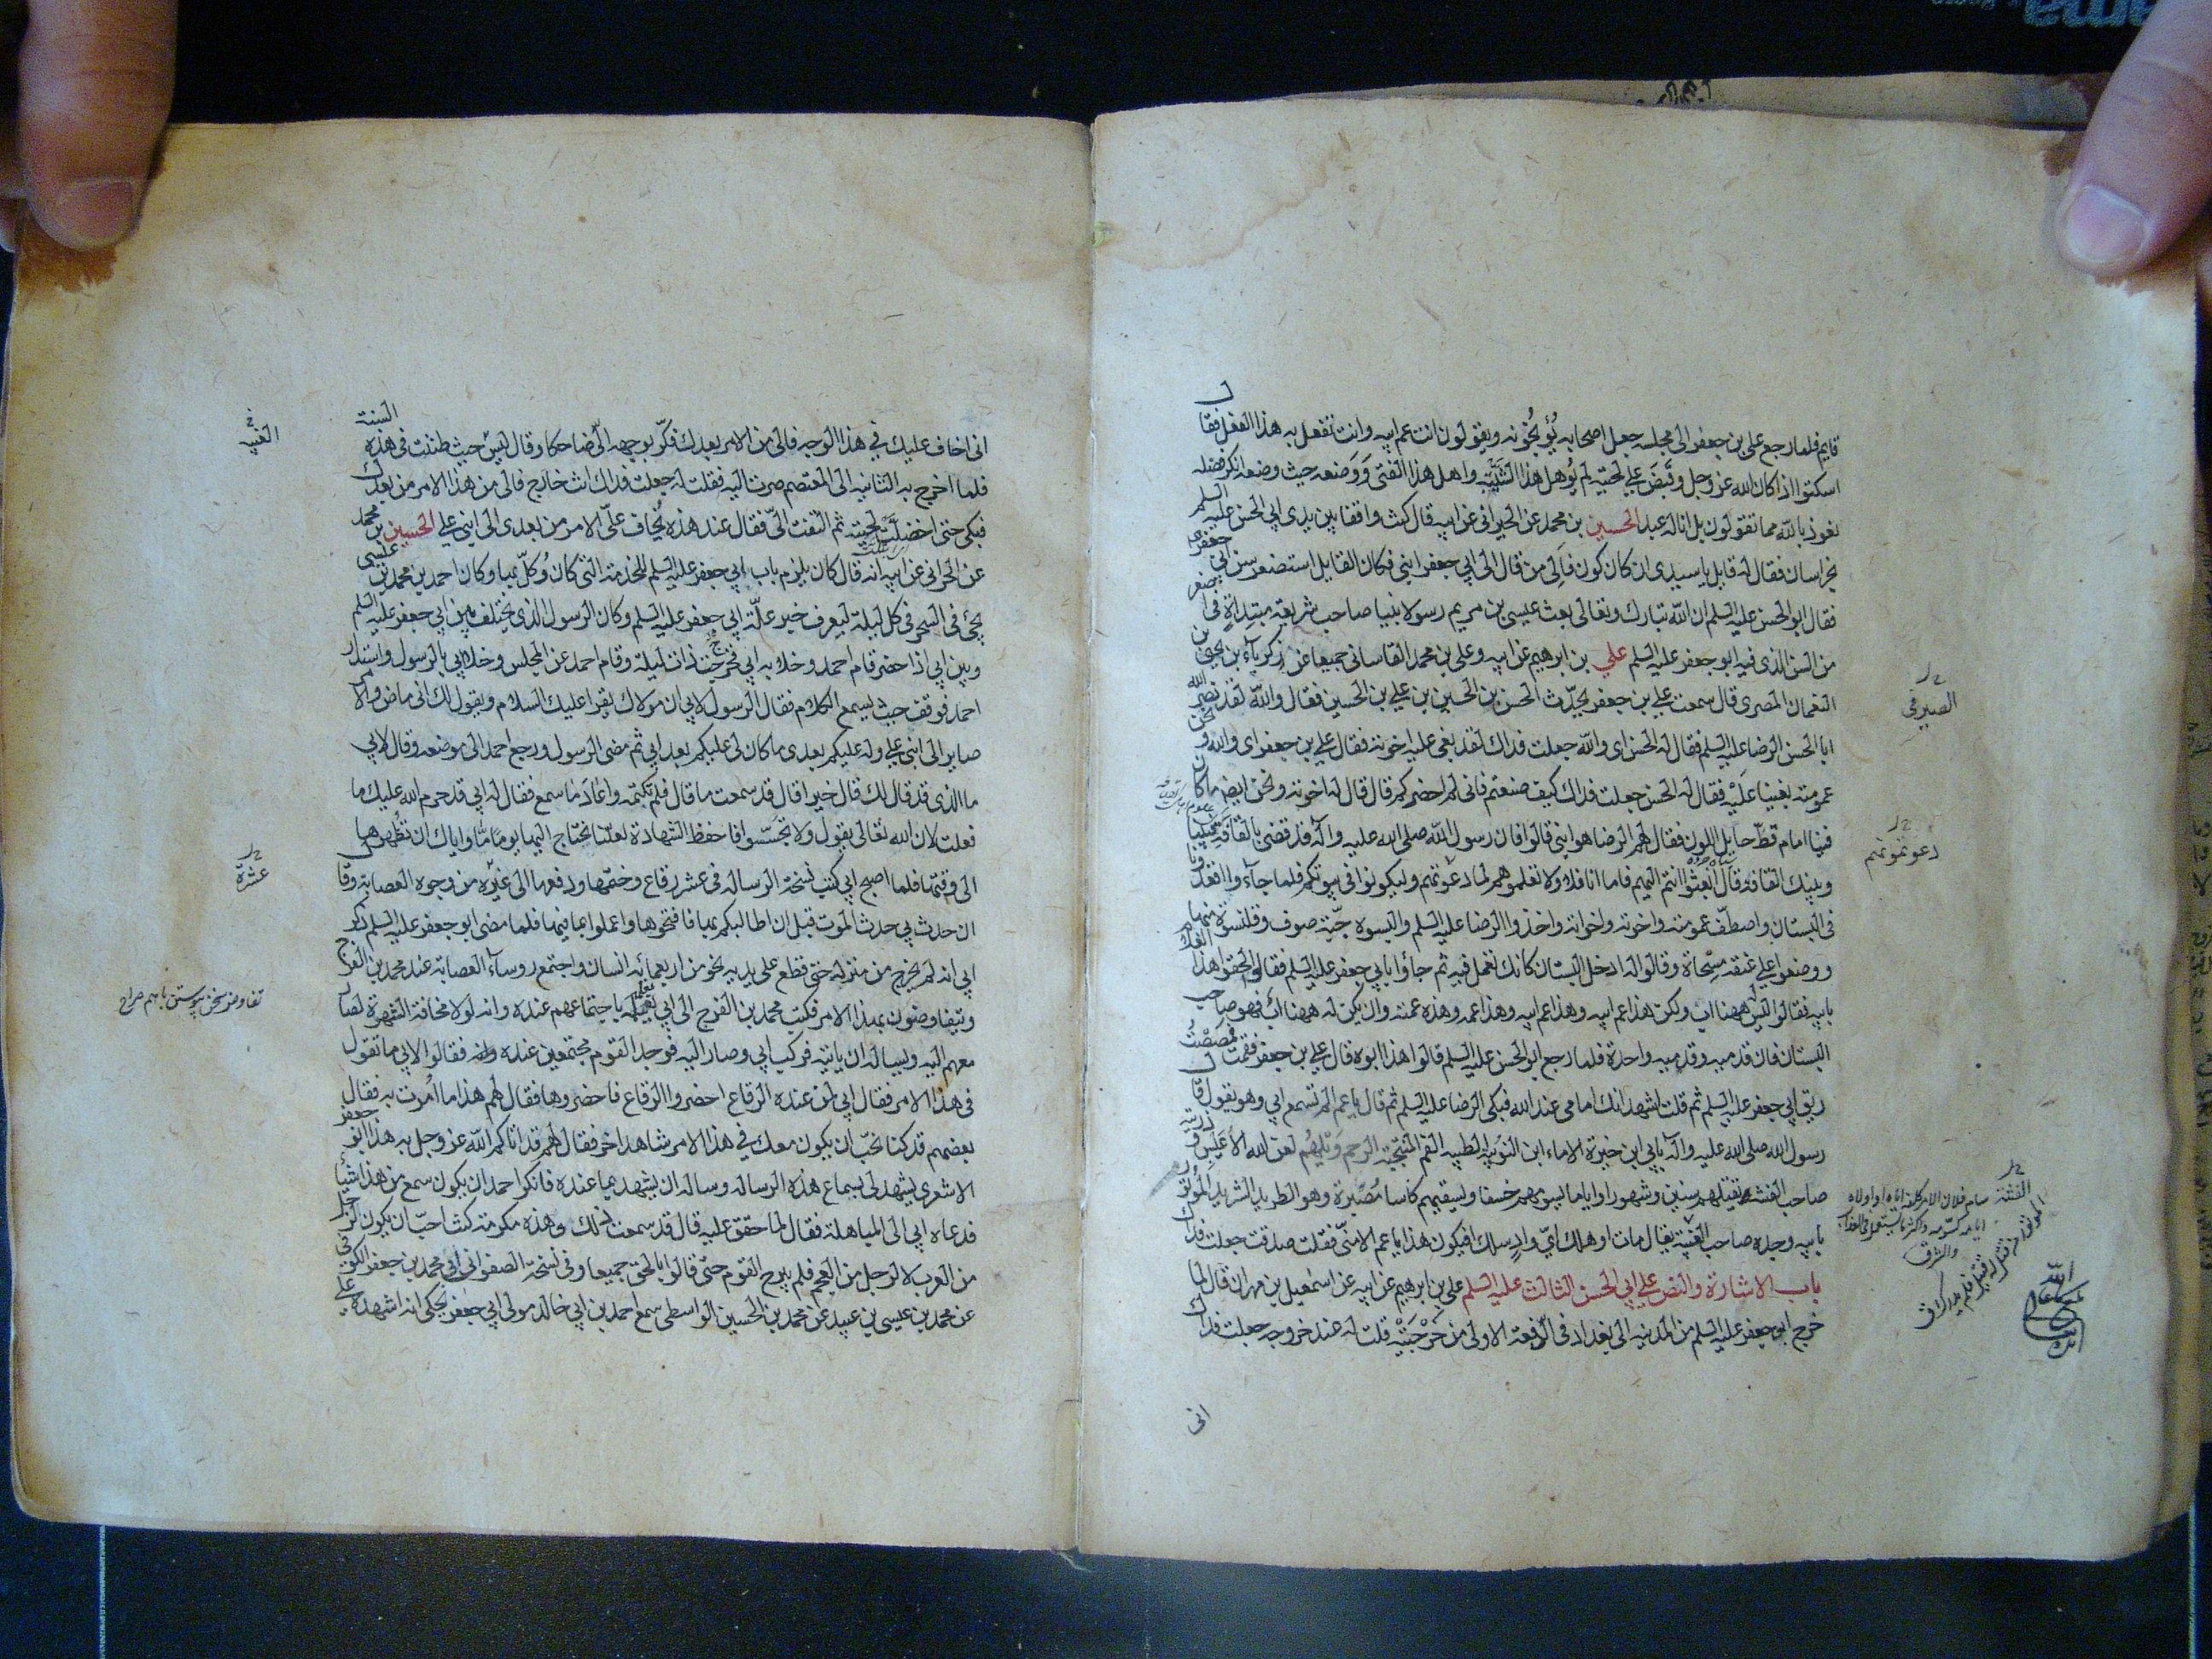 قايم فلما رجع علي بن جعفر الى مجلسه جعل اصحابه يُؤبخُونه ويقولون انت عم ابيه وانت تفعل به هذا الفعل فقال
اسكتوا اذا كان الله عز وجل وقَبَضَ على لحيته لم يُوهل هذا الشَيْبَة واهل هذا الفتى وَوَضعه حيث وضعه انكر فضله
نعوذ بالله مما تقولون بل انا له عبد الحسين بن محمد عن الخيراني عن ابيه قال كنت واقفا بين يدى ابي الحسن عليه السلم
بخراسان فقال له قايل يا سيدى ان كان كون فالى من قال الى ابي جعفر ابني فكان القايل استصغر سن ابي جعفر
فقال ابو الحسن عليه السلم ان الله تبارك وتعالى بعث عيسى بن مريم رسولا نبيا صاحب شريعة مبتداة في اصغر
من السن الذى فيه ابو جعفر عليه السلم علي بن ابرهيم عن ابيه وعلي بن محمد القاساني جميعا عن زكرياء بن يحيى بن
النعمان المصرى قال سمعت علي بن جعفر يحدّث الحسن بن الحسين بن علي بن الحسين فقال والله لقد نصر الله
ابا الحسن الرضا عليه السلم فقال له الحسن اى والله جعلت فداك لقد بغى عليه اخوته فقال علي بن جعفر اى والله ونحن
عمومته بغينا عَلَيْه فقال له الحسن جعلت فداك كيف صنعتم فانى لم احضركم قال قال له اخوته ونحن ايضا ما كان
فينا امام قطّ حايل اللون فقال لهم الرضا هو ابني قالوا فان رسول الله صلى الله عليه وآله قد قضى بالقافة فبيننا
وبينك القافة قال ابْعَثُوا انتم اليهم فاما انا فلا ولا تعلموهم لما دعوتهم وليكونوا في بيوتكم فلما جآءوا اقعدونا
فى البستان واصطفّ عمومته واخوته واخواته واخذوا الرضا عليه السلم والبسوه جبّة صوف وقلنسوة منها
ووضعوا على عنقه مِسْحاة وقالوا له ادخل البستان كانك تعمل فيه ثم جاؤا بابي جعفر عليه السلم فقالوا الحقوا هذا الغلام
بابيه فقالوا ليس له ههنا اب ولكن هذا عم ابيه وهذا عم ابيه وهذا عمه وهذه عمته وان يكن له ههنا اب فهو صاحب
البستان فان قدميه وقدميه واحدة فلما رجع ابو الحسن عليه السلم قالوا هذا ابوه قال علي بن جعفر فقمت فمَصَصْتُ
ريق ابي جعفر عليه السلم ثم قلت اشهد انك امامى عند الله فبكى الرضا عليه السلم ثم قال يا عم الم تسمع ابي وهو يقول قال
رسول الله صلى الله عليه وآله بابي ابن خيرة الاماء ابن النوبية الطيبة الفم المنتجبة الرحم وَيْلَهُم لعن الله الاُعَيْبِس وذريته
صاحب الفتنه يقتلهم سنين وشهورا واياما يسومهم خسفا ويسقيهم كأسا مُصَبّرة وهو الطريد الشريد الموتور
بابيه وجده صاحب الغيبة يقال مات او هلك اىّ وادٍ سلك افيكون هذا يا عم الا منّي فقلت صدقت جعلت فداك
باب الاشارة والنص على ابي الحسن الثالث عليه السلم علي بن ابرهيم عن ابيه عن اسمعيل بن مهران قال لما
خرج ابو جعفر عليه السلم من المدينه الى بغداد فى الدفعة الاولى من خَرْجَتَيْه قلت له عند خروجه جعلت فداك
انى
الصيرفي
دعوتموهم
الفتنة
انى اخاف عليك في هذا الوجه فالى من الامر بعدك فكرّ بوجهه الىّ ضاحكا وقال ليس حيث ظننت فى هذه السنة
فلما اخرج به الثانيه الى المعتصم صرت اليه فقلت له جعلت فداك انت خارج فالى من هذا الامر من بعدك
فبكى حتى اخضلّت لحيته ثم التفت الىّ فقال عند هذه يُخاف علىّ الامر من بعدى الى ابنى علي الحسين بن محمد
عن الخيرانى عن ابيه انه قال كان يلزم باب ابي جعفر عليه السلم للخدمة التى كان وُكّل بها وكان احمد بن محمد بن عيسى
يجئ فى السحر فى كل ليلة ليعرف خبر علّة ابي جعفر عليه السلم وكان الرسول الذى يختلف بين ابي جعفر عليه السلم
وبين ابي اذا حضر قام احمد وخلا به ابي فخرجت ذات ليلة وقام احمد عن المجلس وخلا ابي بالرسول واستدار
احمد فوقف حيث يسمع الكلام فقال الرسول لابي ان مولاك يقرا عليك السلام ويقول لك انى ماض والامر
صاير الى ابنى علي وله عليكم بعدى ما كان لى عليكم بعد ابي ثم مضى الرسول ورجع احمد الى موضعه وقال لابي
ما الذى قد قال لك قال خيرا قال قد سمعت ما قال فلم تكتمه واعادَ ما سمع فقال له ابي قد حرم الله عليك ما
فعلت لان الله تعالى يقول ولا تجسّسوا فاحفظ الشهادة لعلّنا نحتاج اليها يومًا مّا واياك ان تظهرها
الى وقتها فلما اصبح ابي كتب نسخة الرسالة فى عشر رقاع وختمها ودفعها الى عشرة من وجوه العصابة وقال
ان حدث بي حدث الموت قبل ان اطالبكم بها فافتحوها واعملوا بما فيها فلما مضى ابو جعفر عليه السلم ذكر
ابي انه لم يخرج من منزله حتى قطع على يديه نحو من اربعمائه انسان واجتمع روساء العصابة عند محمد بن الفرج
ويتفاوضون بهذا الامر فكتب محمد بن الفرج الى ابي يعلمه باجتماعهم عنده وانه لولا مخافة الشهرة لصار
معهم اليه ويساله ان ياتيه فركب ابي وصار اليه فوجد القوم مجتمعين عنده فقالوا لابي ما تقول
فى هذا الامر فقال ابي لمن عنده الرقاع احضروا الرقاع فاحضروها فقال لهم هذا ما اُمرت به فقال
بعضهم قد كنا نحبّ ان يكون معك في هذا الامر شاهد اخر فقال لهم قد اتاكم الله عز وجل به هذا ابو جعفر
الاشعرى يشهد لى بسماع هذه الرسالة وساله ان يشهد بما عنده فانكر احمد ان يكون سمع من هذا شيئا
فدعاه ابي الى المباهلة فقال لما حقق عليه قال قد سمعت ذلك وهذه مكرمة كنت احبّ ان يكون لرجل
من العرب لا لرجل من العجم فلم يبرح القوم حتّى قالوا بالحق جميعا وفى نسخة الصفوانى ابي محمد بن جعفر الكوفى
عن محمد بن عيسى بن عبيد عن محمد بن الحسين الواسطى سمع احمد بن ابي خالد مولى ابي جعفر يحكى انه اشهده على
الغيبه
عشرة